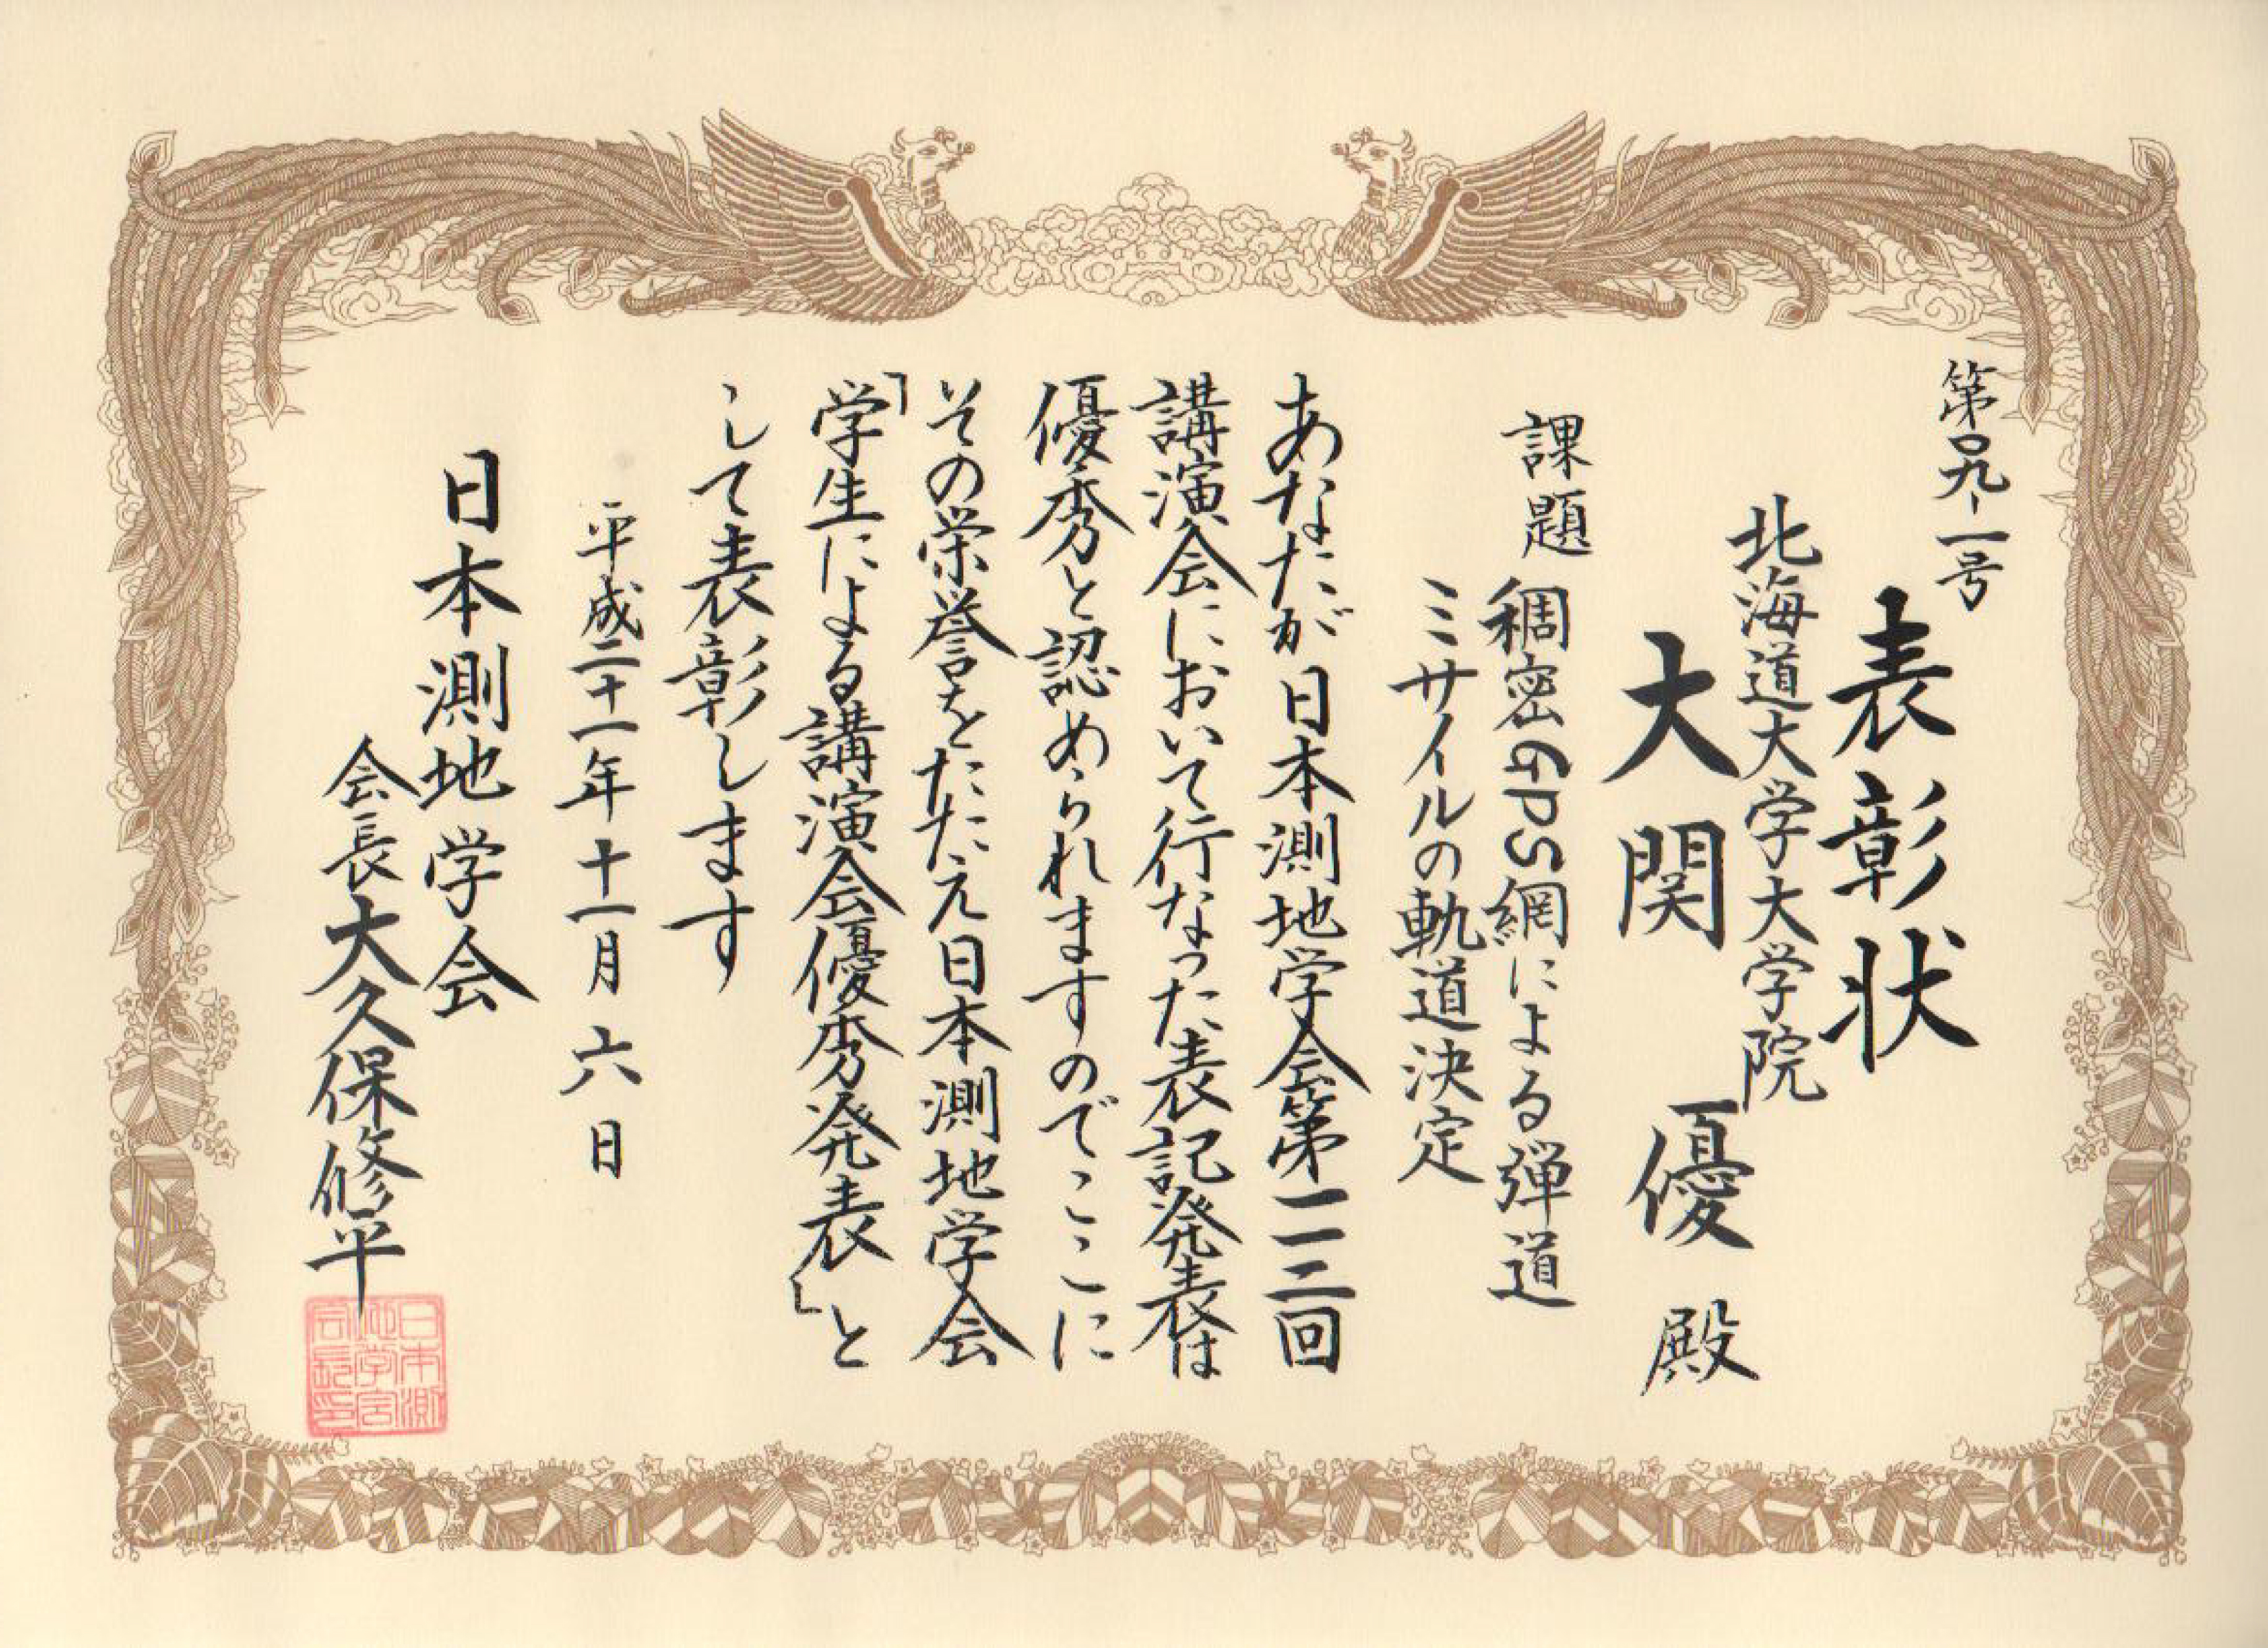 第〇九-一号
表彰状
北海道大学大学院
大関 優 殿
課題 稠密GPS網による弾道
ミサイルの軌道決定
あなたが日本測地学会第一一二回
講演会において行なった表記発表は
優秀と認められますのでここに
その栄誉をたたえ日本測地学会
「学生による講演会優秀発表」と
して表彰します
平成二十一年十一月六日
日本測地学会
会長 大久保修平
日本測
地学会
会長印